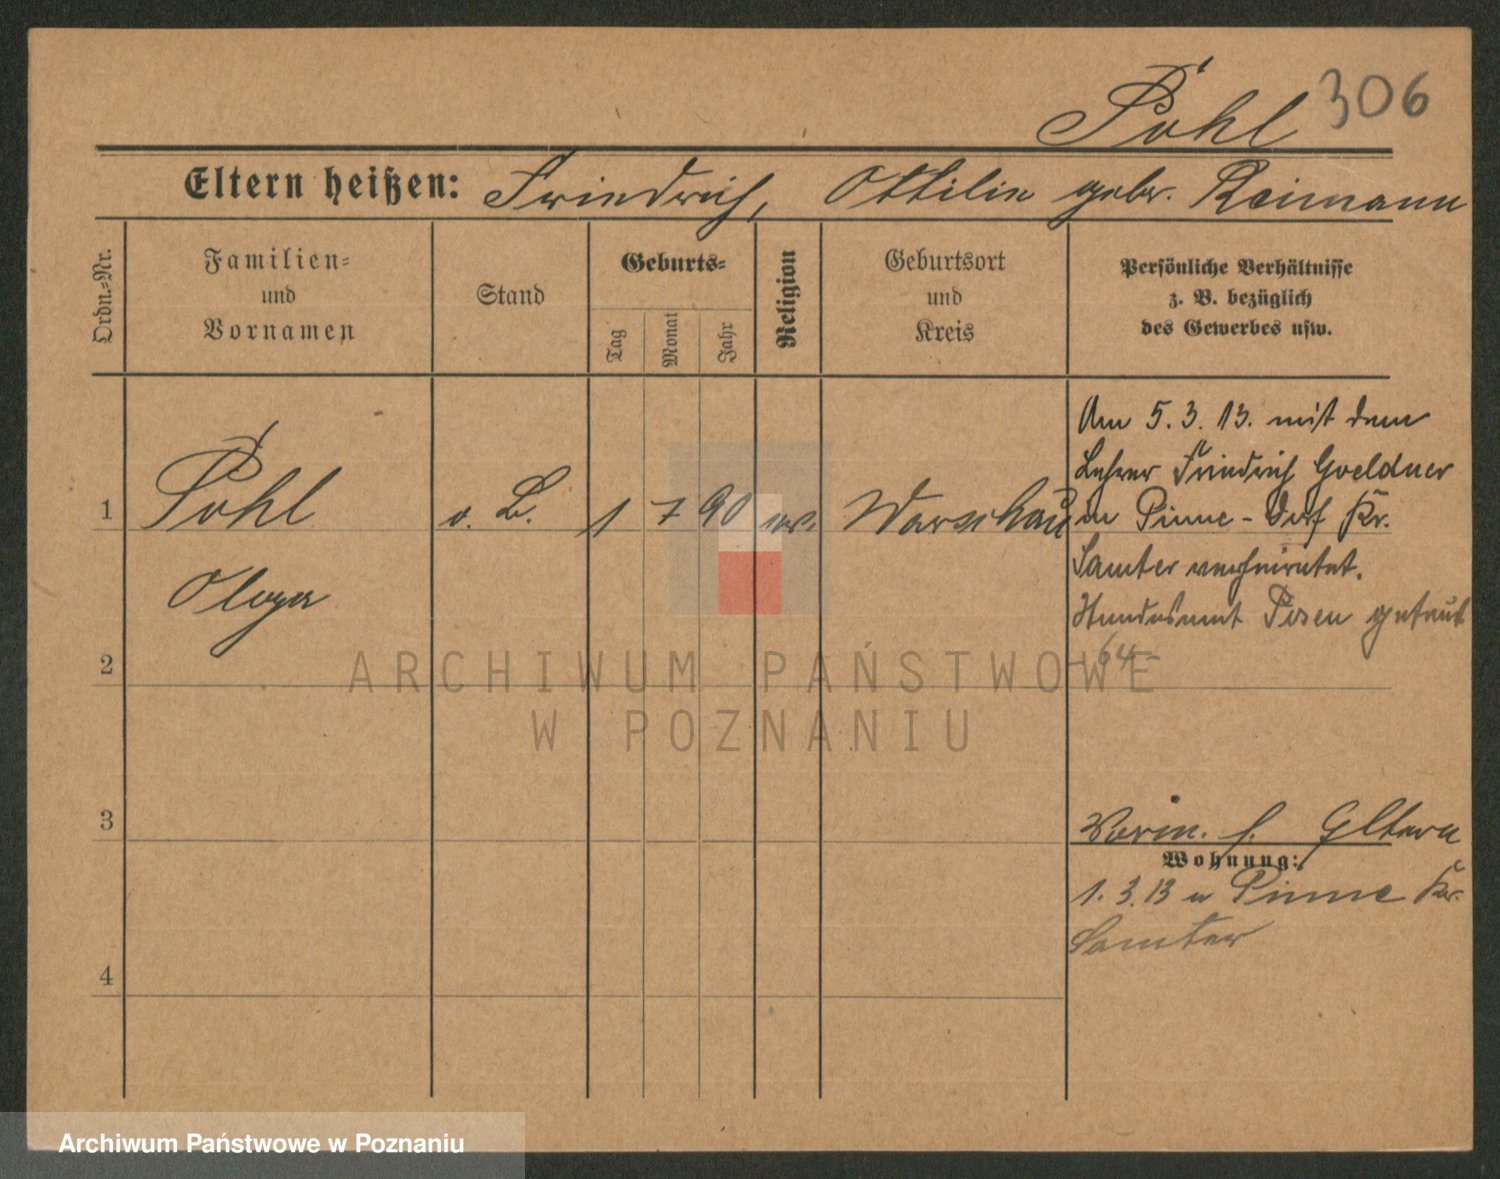 Pohl 306
Eltern heißen: Friedrich, Ottilie gebr. Reimann
Ordn.-Nr.
Familien-
und
Vornamen
Stand
Geburts-
Tag
Monat
Jahr
Religion
Geburtsort
und
Kreis
Persönliche Verhältnisse
z. B. bezüglich
des Gewerbes usw.
1 Pohl o. B. 1 7 90 ev. Warschau
Olga
Am 5.3.13. mit dem
Lehrer Friedrich Goeldner
in Pinne-Dorf Kr.
Samter verheiratet.
Standesamt Posen getraut
64
2
3
4
Worin. s. Eltern
Wohnung:
1.3.13 n Pinne Kr.
Samter
ARCHIWUM PAŃSTWOWE
W POZNANIU
Archiwum Państwowe w Poznaniu